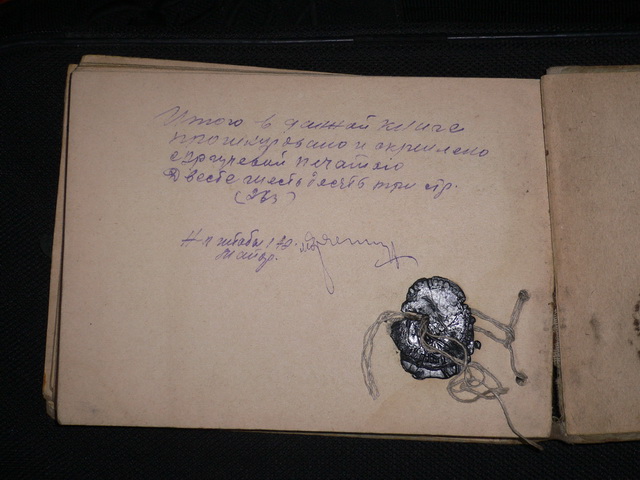 Итого в данной книге
прошнуровано и скреплено
сургучевой печатью
Двести шестьдесять три стр.
(263)
Н-к штаба
Майор.